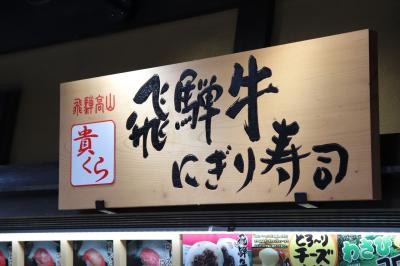 飛騨高山
貴くら
飛騨牛
にぎり寿司
とろ～り
チーズ
わさび